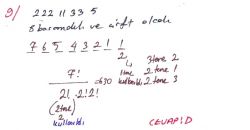 9/ 222 11 33 5
8 basamaklı ve çift olcak
7 6 5 4 3 2 1 1
2
3 tane 2
7! 1 tane 2 tane 1
2! 2! 2! kullanıldı 2 tane 3
(2 tane)
2
kullanıldı
CEVAP:D